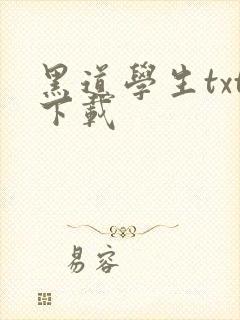 黑道學生txt
下載
易容